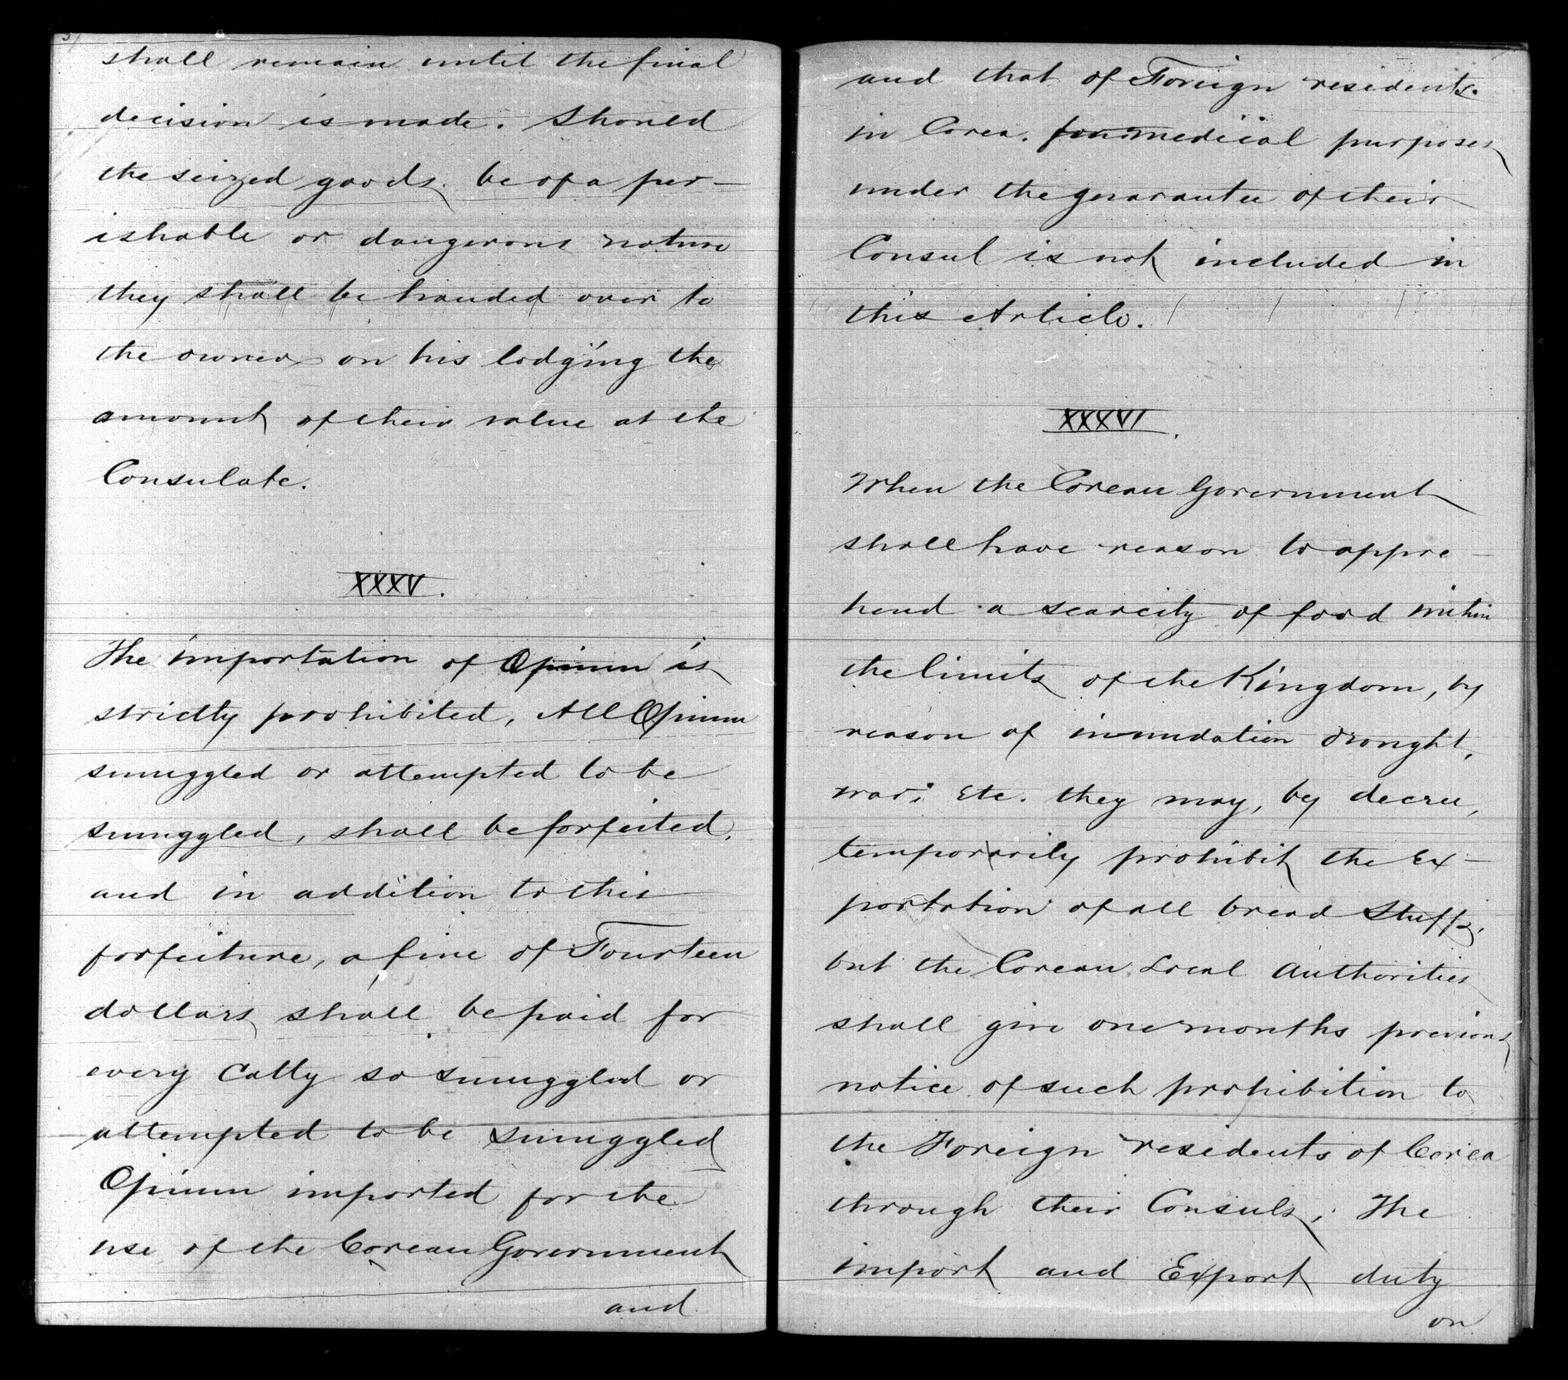 shall remain until the final
decision is made. Should
the seized goods be of a per-
ishable or dangerous nature
they shall be handed over to
the owner on his lodging the
amount of their value at the
Consulate.
XXXV.
The importation of Opium is
strictly prohibited, All Opium
smuggled or attempted to be
smuggled, shall be forfeited,
and in addition to this
forfeiture, a fine of Fourteen
dollars shall be paid for
every Catty so smuggled or
attempted to be smuggled
Opium imported for the
use of the Corean Government
and
and that of Foreign residents
in Corea. for medical purposes
under the guarantee of their
Consul is not included in
this Article.
XXXVI.
When the Corean Government
shall have reason to appre-
hend a scarcity of food within
the limits of the Kingdom, by
reason of inundation drought,
war, Etc. they may, by decree,
temporarily prohibit the Ex-
portation of all bread Stuffs,
but the Corean Local Authorities
shall give one months previous
notice of such prohibition to
the Foreign residents of Corea
through their Consuls; The
import and Export duty
on